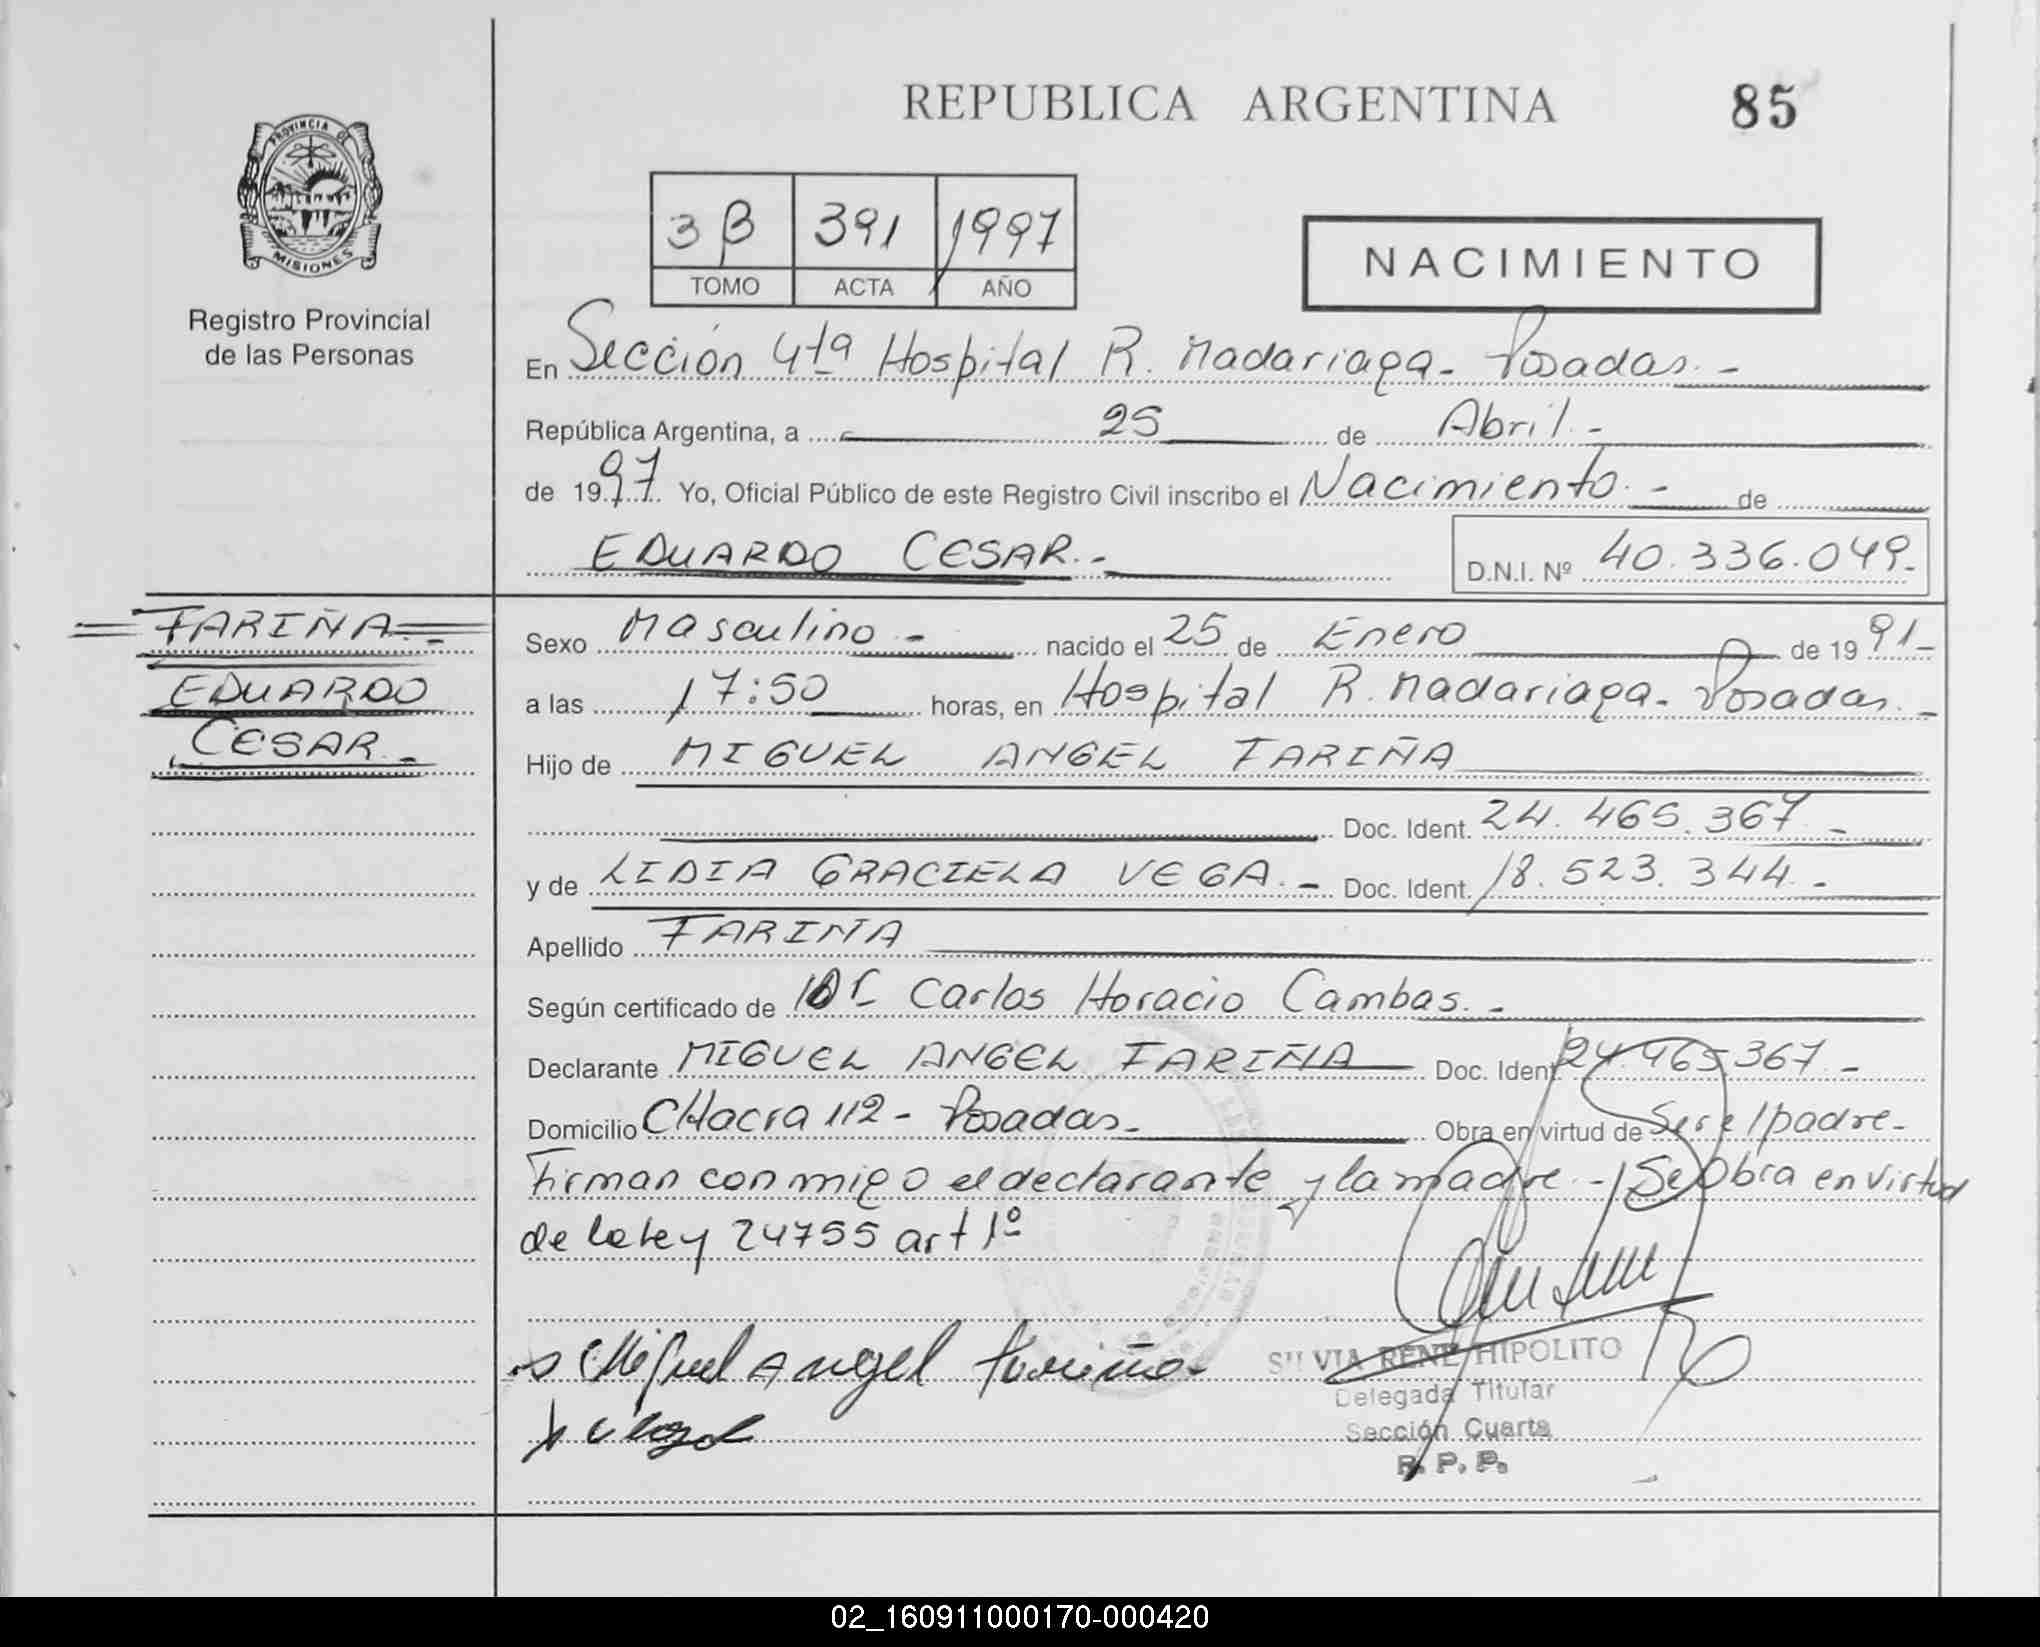 REPUBLICA ARGENTINA
85
PROVINCIA DE
MISIONES
Registro Provincial
de las Personas
3 B 391 1997
TOMO ACTA AÑO
NACIMIENTO
En Sección 4ta Hospital R. Madariaga - Posadas. -
República Argentina, a 25 de Abril. -
de 1997. Yo, Oficial Público de este Registro Civil inscribo el Nacimiento. - de
EDUARDO CESAR. -
D.N.I. Nº 40.336.049.-
FARIÑA. -
EDUARDO
CESAR. -
Sexo Masculino - nacido el 25 de Enero de 19 91 -
a las 17:50 horas, en Hospital R. Madariaga - Posadas. -
Hijo de MIGUEL ANGEL FARIÑA
Doc. Ident. 24.465.367 -
y de LIDIA GRACIELA VEGA. - Doc. Ident. 18.523.344. -
Apellido FARIÑA
Según certificado de Dr Carlos Horacio Cambas. -
Declarante MIGUEL ANGEL FARIÑA Doc. Ident. 24.465.367. -
Domicilio CHacra 112 - Posadas. Obra en virtud de Ser el padre -
Firman conmigo el declarante y la madre. - Se Obra en virtud
de la ley 24755 art 1º
Miguel Angel Fariña
SILVIA RENE HIPOLITO
Delegada Titular
Sección Cuarta
R. P. P.
02_160911000170-000420